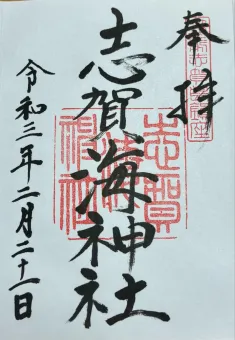 奉拝
志賀海神社
令和三年二月二十一日
志賀海神社